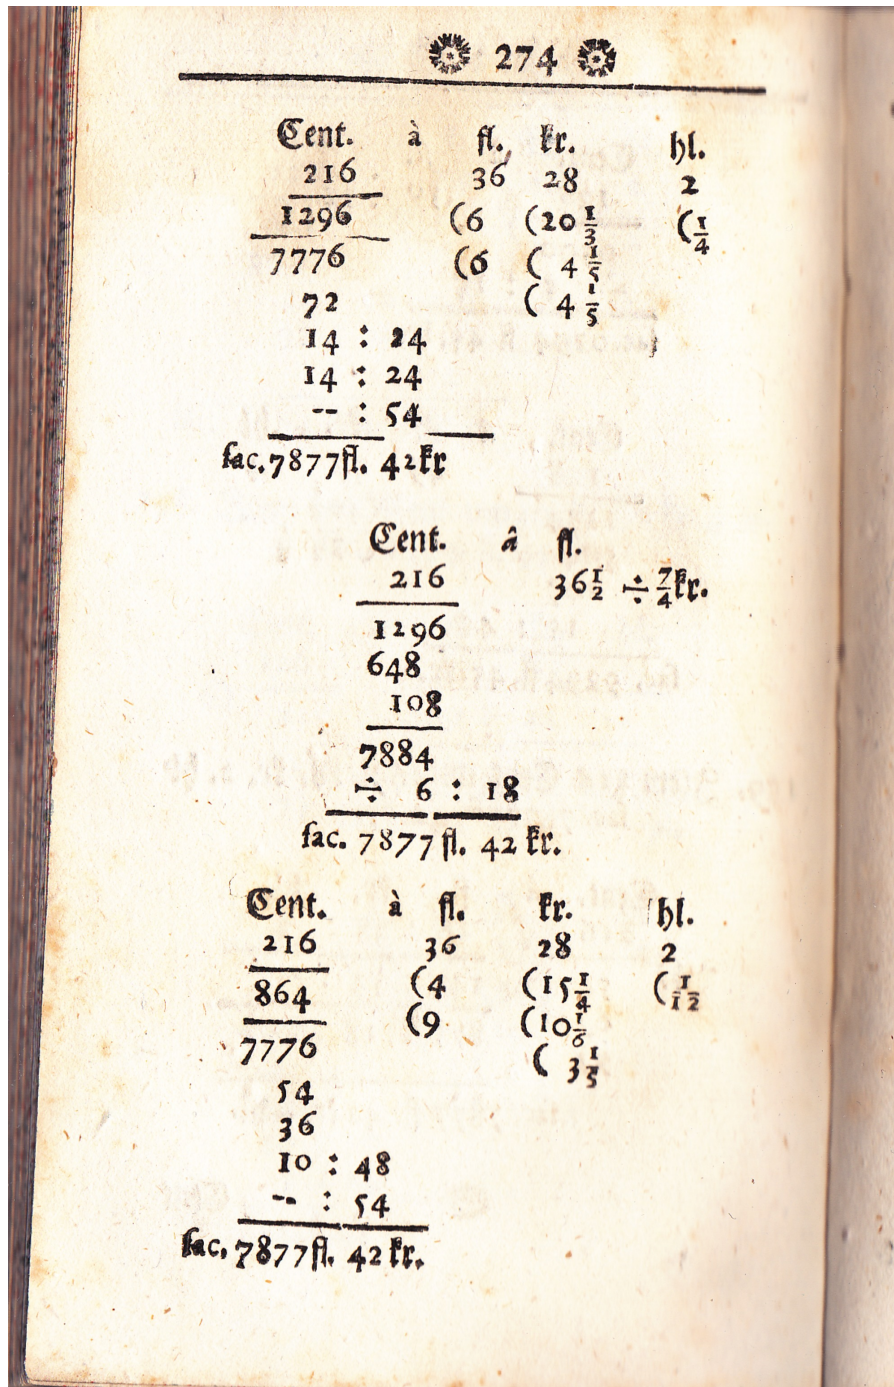 274
Cent. à fl. kr. hl.
216 36 28 2
1296 (6 (20 1/3 (1/4
7776 (6 ( 4 1/5
72 ( 4 1/5
14 : 24
14 : 24
-- : 54
fac. 7877 fl. 42 kr
Cent. â fl.
216 36 1/2 ÷ 7/4 kr.
1296
648
108
7884
÷ 6 : 18
fac. 7877 fl. 42 kr.
Cent. à fl. kr. hl.
216 36 28 2
864 (4 (15 1/4 (1/12
7776 (9 (10 1/6
( 3 1/5
54
36
10 : 48
-- : 54
fac. 7877 fl. 42 kr.